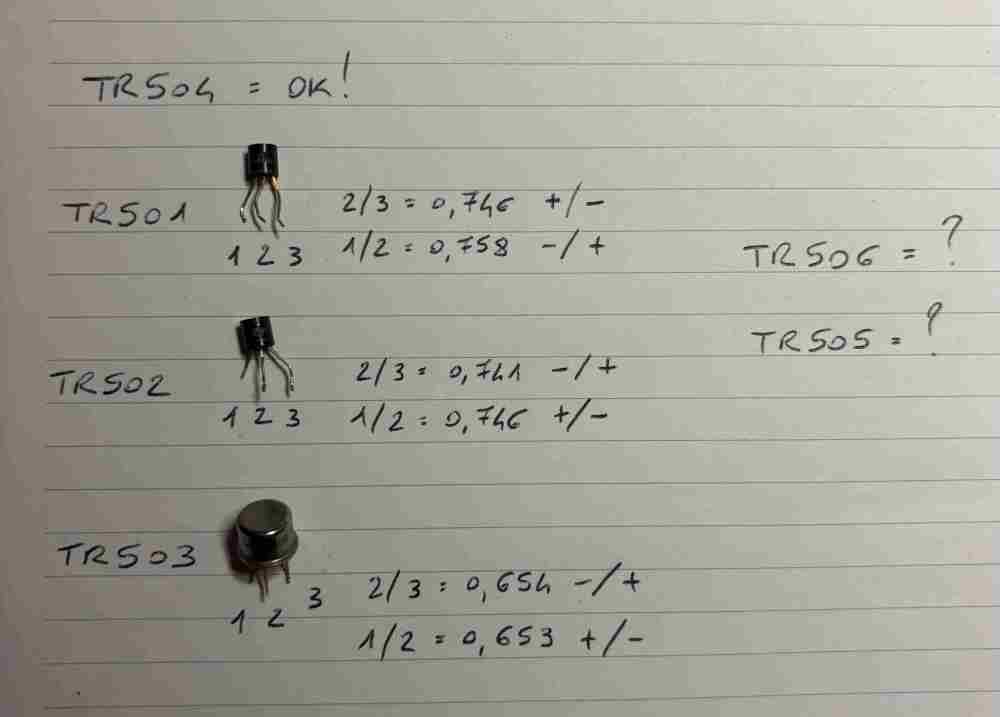 TR504 = OK!
TR501
2/3 = 0,746 +/-
1/2 = 0,758 -/+
1 2 3
TR506 = ?
TR505 = ?
TR502
2/3 = 0,741 -/+
1/2 = 0,746 +/-
1 2 3
TR503
2/3 = 0,654 -/+
1/2 = 0,653 +/-
1 2 3